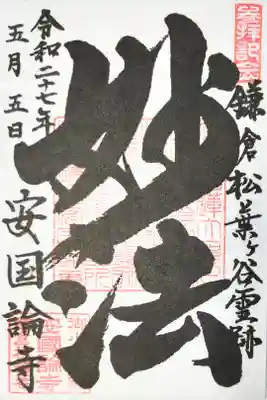 参拝記念
鎌倉松葉ヶ谷霊跡
妙法
令和二十七年
五月五日
安国論寺